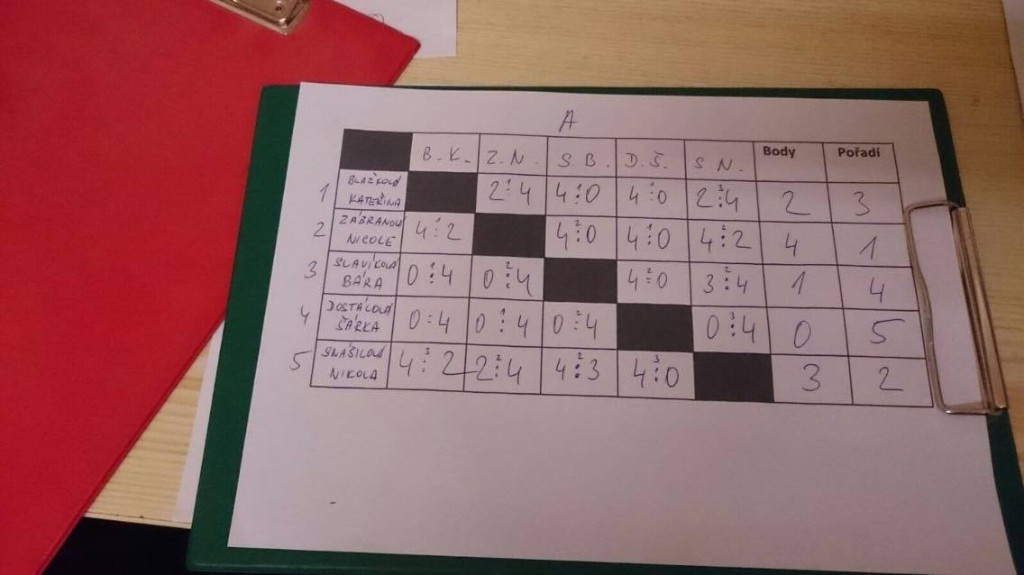 A
B.K. Z.N. S.B. D.Š. S.N. Body Pořadí
1 BLAŽKOVÁ KATEŘINA 2:4 4:0 4:0 2:4 2 3
2 ZÁBRANOVÁ NICOLE 4:2 4:0 4:0 4:2 4 1
3 SLAVÍKOVÁ BÁRA 0:4 0:4 4:0 3:4 1 4
4 DOSTÁLOVÁ ŠÁRKA 0:4 0:4 0:4 0:4 0 5
5 SNÁŠILOVÁ NIKOLA 4:2 2:4 4:3 4:0 3 2